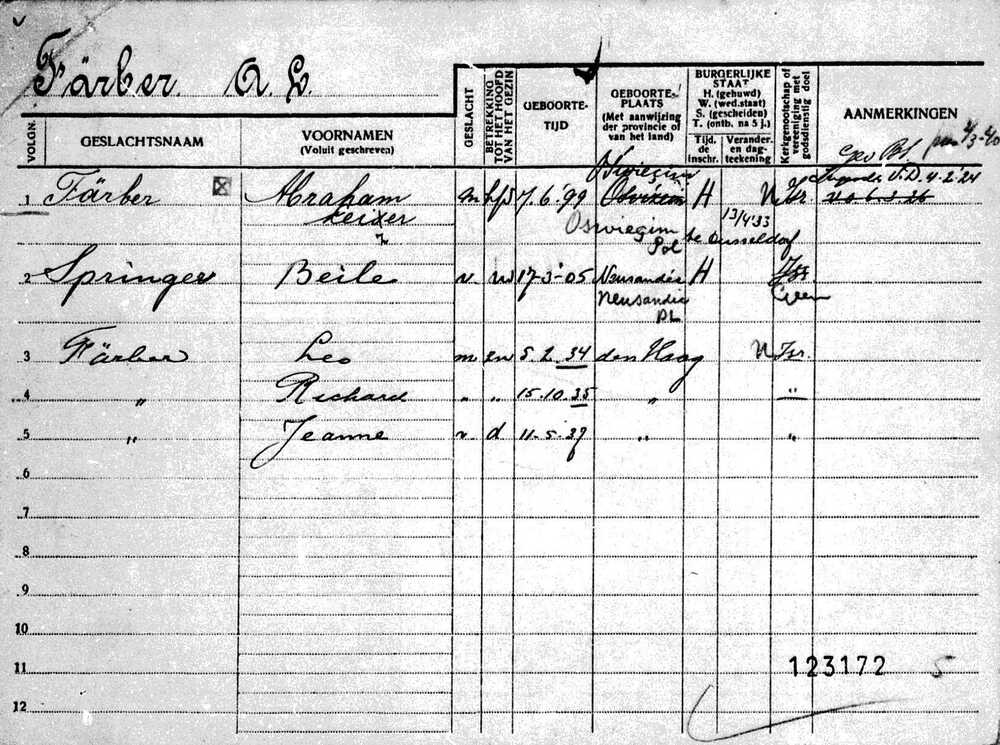 Färber. A. L.
VOLGN.
GESLACHTSNAAM
VOORNAMEN
(Voluit geschreven)
GESLACHT
BETREKKING
TOT HET HOOFD
VAN HET GEZIN
GEBOORTE-
TIJD
GEBOORTE-
PLAATS
(Met aanwijzing
der provincie of
van het land)
BURGERLIJKE
STAAT
H. (gehuwd)
W. (wed.staat)
S. (gescheiden)
T. (ontb. na 5 j.)
Tijd.
de
inschr.
Verander.
en dag-
teekening
Kerkgenootschap of
vereeniging met
godsdienstig doel
AANMERKINGEN
4/3-40
1 Färber Abraham m hfd 7.6.'99 H N Isr. V.D. 4-2-24
13/4'33
Oswiecim te Dusseldorf
Pol
2 Springer Beile v. 17-3-05 Neusandez H Isr.
Neusandez
PL
3 Färber Leo m zn 5.2.34 den Haag N Isr.
4 " Richard " " 15.10.35 " "
5 " Jeanne v. d 11-5-37 " "
6
7
8
9
10
11 123172 5
12